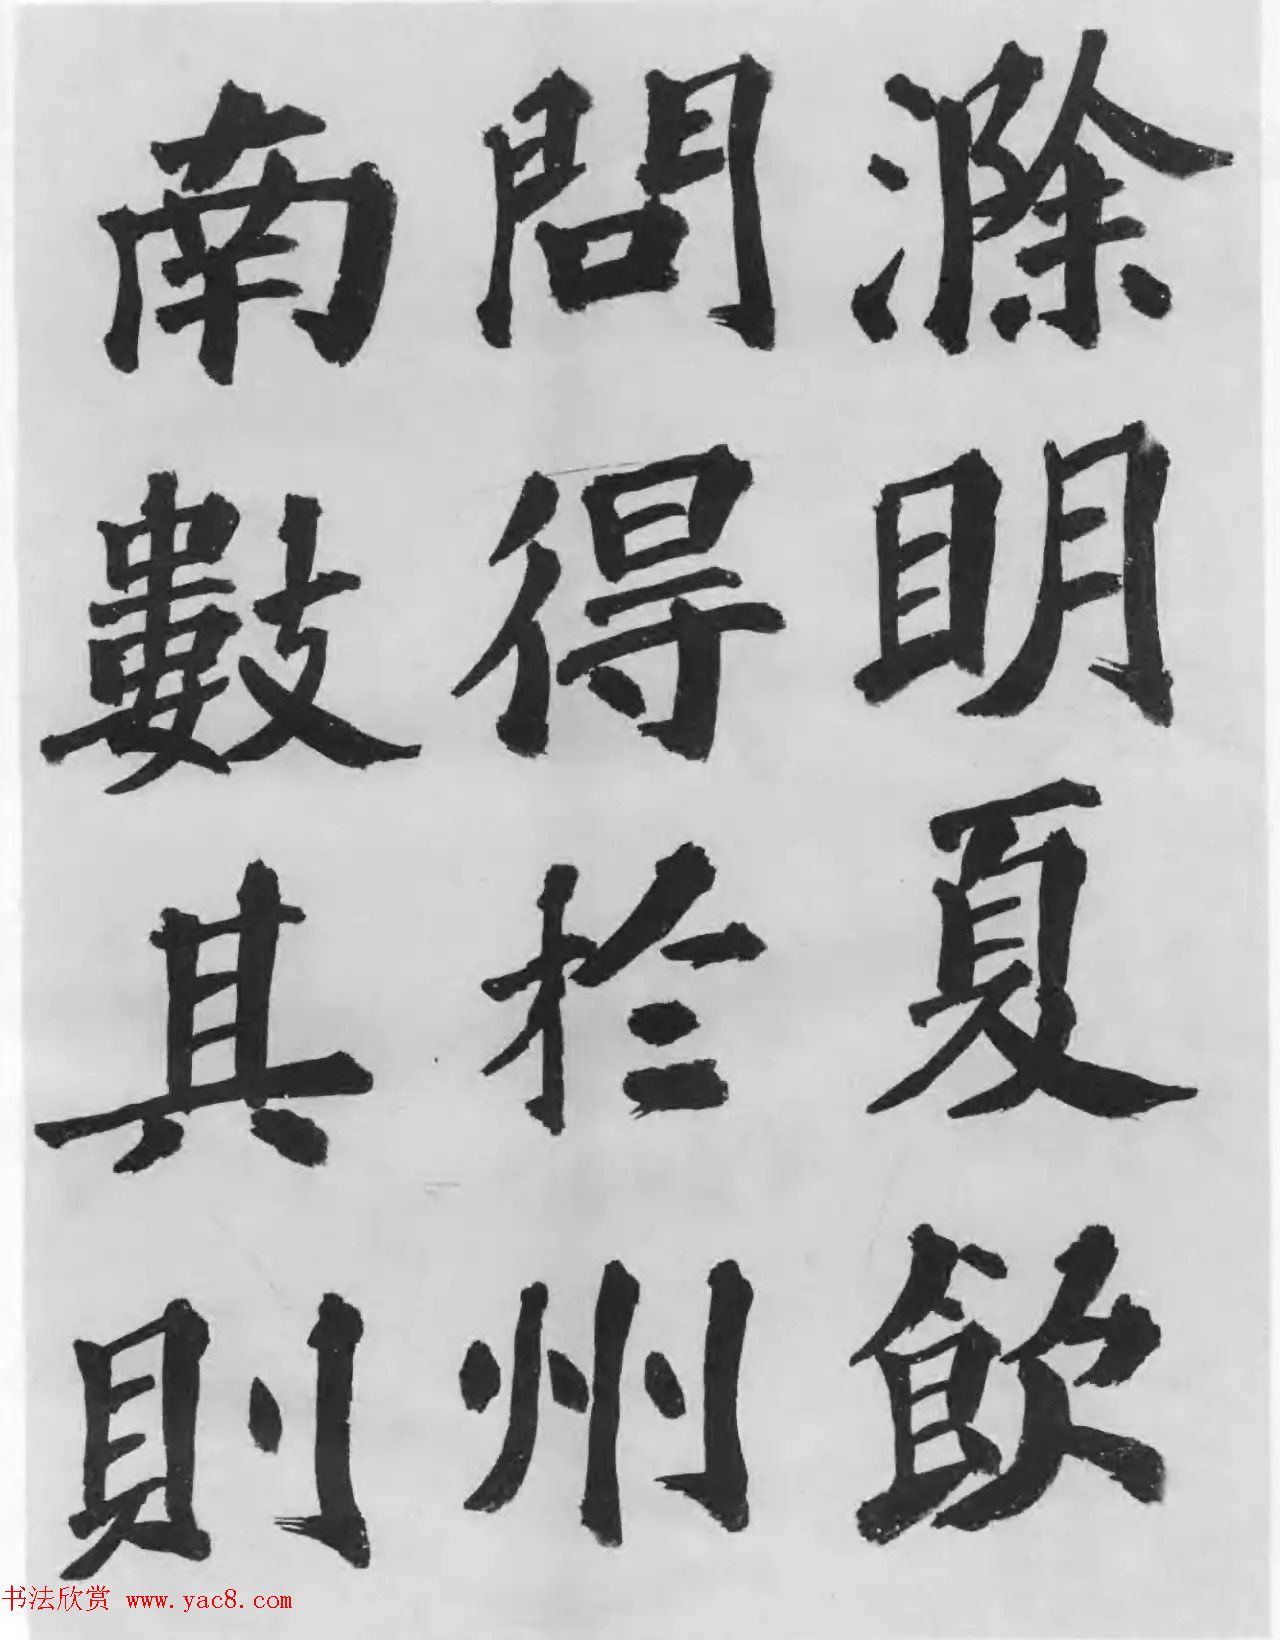 滁明夏飲
問得於州
南數其則
书法欣赏 www.yac8.com